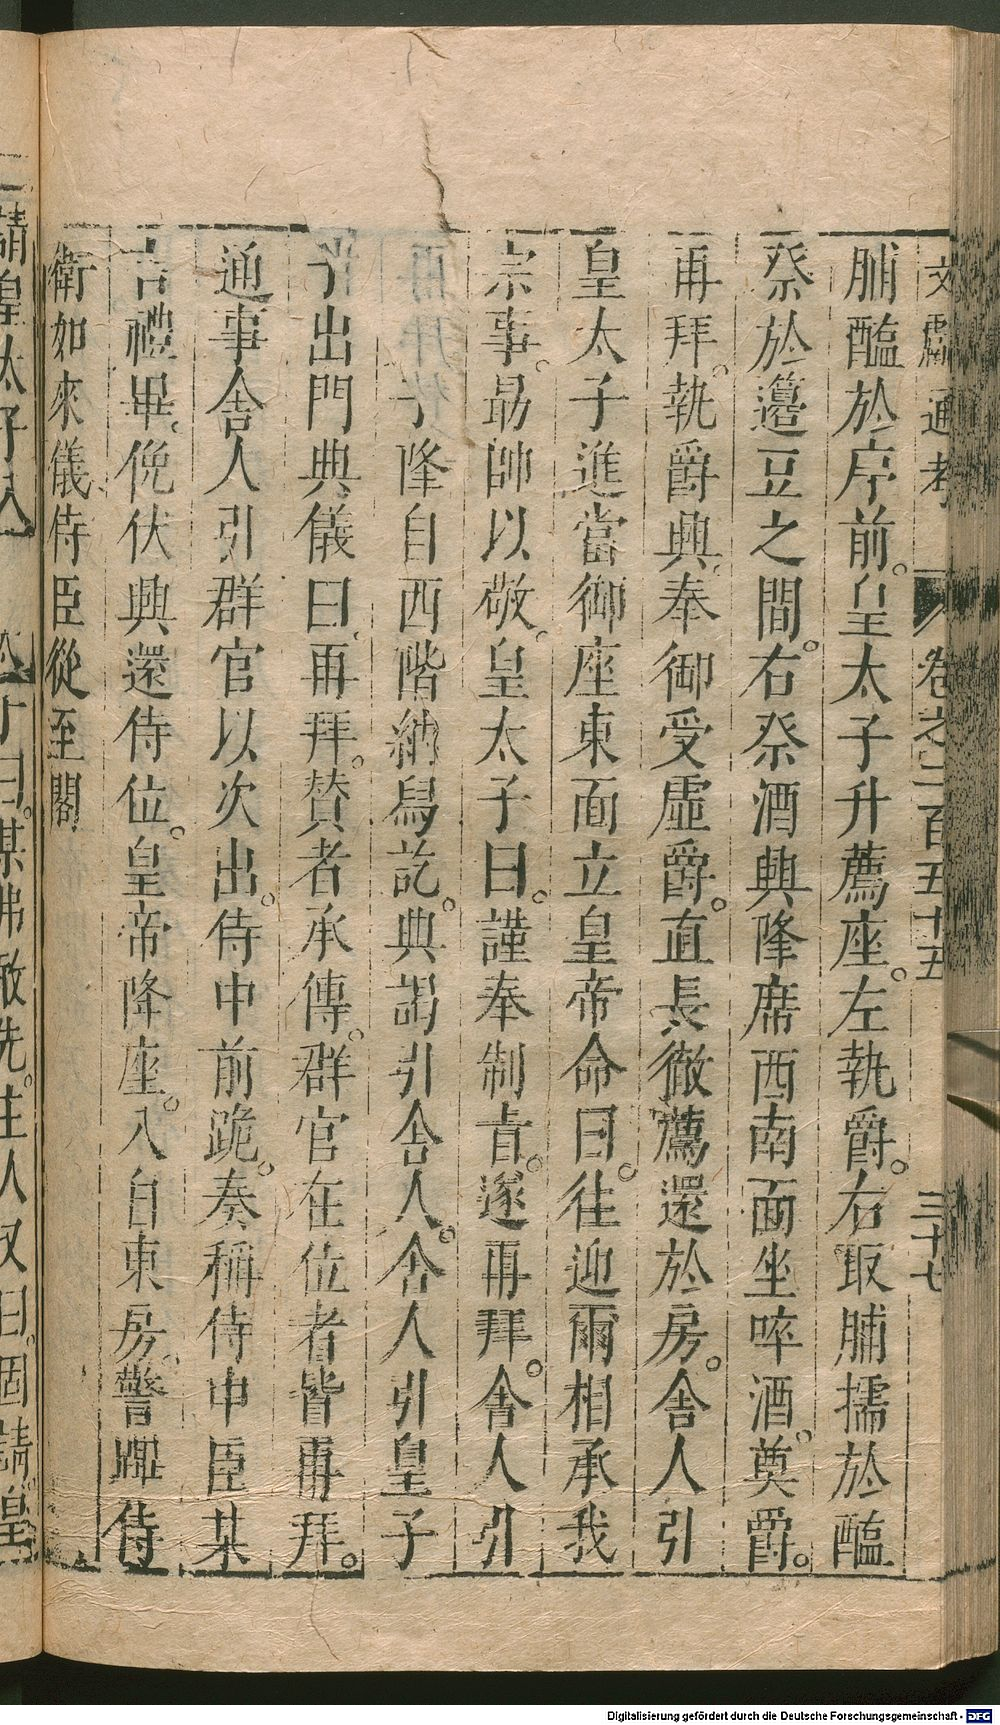 文獻通考 卷之二百五十五 三十七
脯醢於序前。皇太子升薦座。左執爵。右取脯擩於醢
祭於籩豆之間。右祭酒興降席西南面坐啐酒。奠爵。
再拜。執爵興。奉御受虛爵。直長徹薦還於房。舍人引
皇太子進當御座東面立皇帝命曰。往迎爾相承我
宗事。勗帥以敬。皇太子曰。謹奉制旨。遂再拜。舍人引
子降自西階納舄訖。典謁引舍人。舍人引皇子
子出門典儀曰。再拜。贊者承傳。群官在位者皆再拜。
通事舍人引群官以次出。侍中前跪。奏稱侍中臣某
言禮畢。俛伏興還侍位。皇帝降座。入自東房。警蹕侍
衛如來儀侍臣從至閤
請皇太子入
曰。某弗敢先。主人又曰。固請。皇
Digitalisierung gefördert durch die Deutsche Forschungsgemeinschaft - DFG